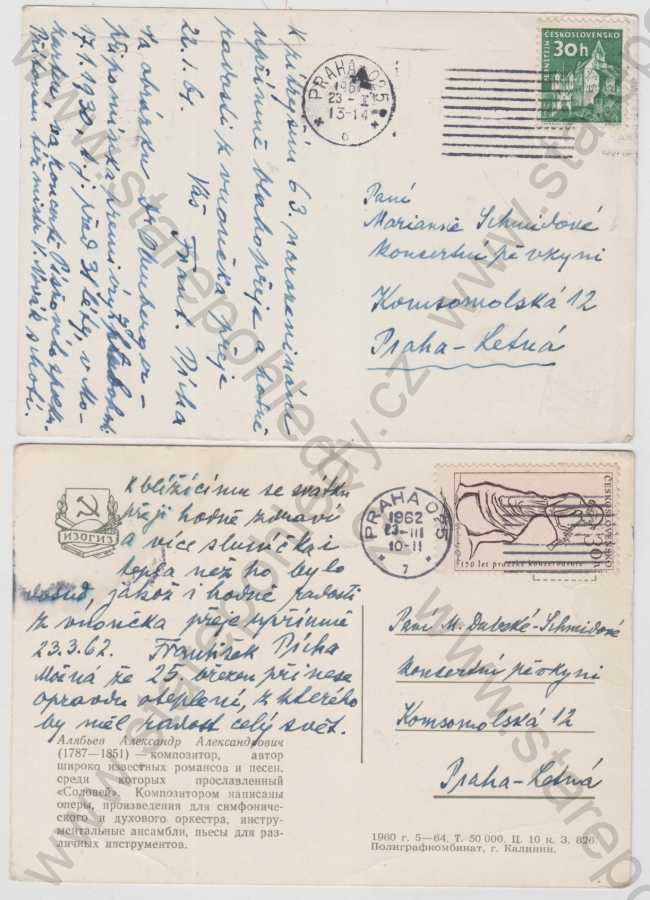 K pěkným 63. narozeninám
upřímně blahopřeje a hodně
radosti z vnoučka přeje
22.1.61. Váš Frant. Pícha
Na obrázku Dr
připomínka premiéry
17.1.1930, t.j. před 31 léty, v Mo-
zarteu, na koncertě
V. Novák
PRAHA 025
1961
23 - I
13-14
6
ČESKOSLOVENSKO
30h
PERNŠTEJN
Paní
Marianně Schmidové
koncertní pěvkyni
Komsomolská 12
Praha-Letná
ИЗОГИЗ
K blížícímu se svátku
přeji hodně zdraví
a více sluníčka i
tepla než ho bylo
dosud, jakož i hodně radosti
z vnoučka přeje upřímně
23.3.62. František Pícha
Možná že 25. březen přinese
opravdu oteplení, z kterého
by měl radost celý svět.
Алябьев Александр Александрович
(1787—1851) — композитор, автор
широко известных романсов и песен,
среди которых прославленный
«Соловей». Композитором написаны
оперы, произведения для симфониче-
ского и духового оркестра, инстру-
ментальные ансамбли, пьесы для раз-
личных инструментов.
PRAHA 025
1962
23-III
10-11
7
ČESKOSLOVENSKO
150 let pražské konzervatoře
Paní M. Dubské-Schmidové
koncertní pěvkyni
Komsomolská 12
Praha-Letná
1960 г. 5—64. Т. 50 000. Ц. 10 к. З. 826.
Полиграфкомбинат, г. Калинин.
www.starepohledy.cz
www.starepohledy.cz
www.starepohledy.cz